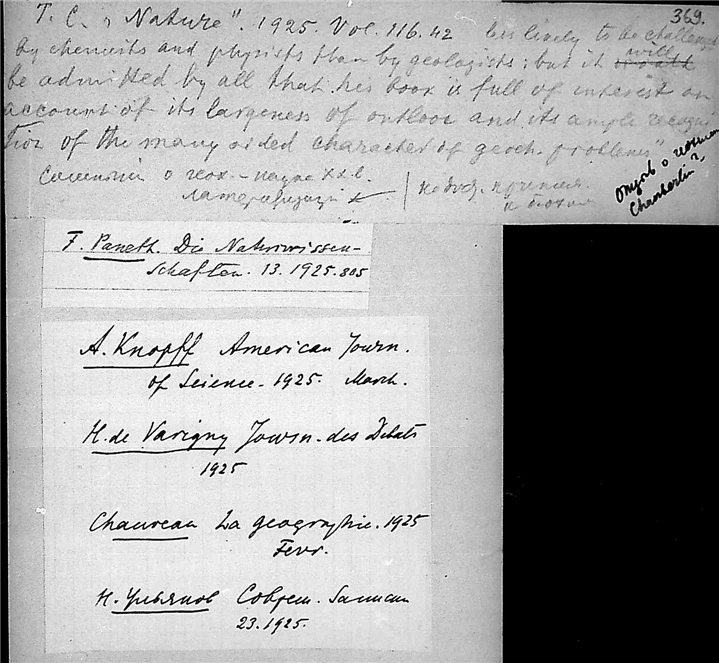 369.
T. C. „Nature". 1925. Vol. 116. 42 less likely to be challenged
by chemists and physists than by geologists; but it will
be admitted by all that his book is full of interest on
account of its largeness of outlook and its ample recogni
tion of the many sided character of geoch. problems"
о геох. – науке XX в.
Chamberlin?
F. Paneth. Die Naturwissen-
schaften. 13. 1925. 805
A. Knopff American Journ.
of Science. 1925. March.
H. de Varigny Journ. des Debats
1925
Chaureau La geographie. 1925
Fevr.
Н. Ульянов Соврем. Записки
23. 1925.